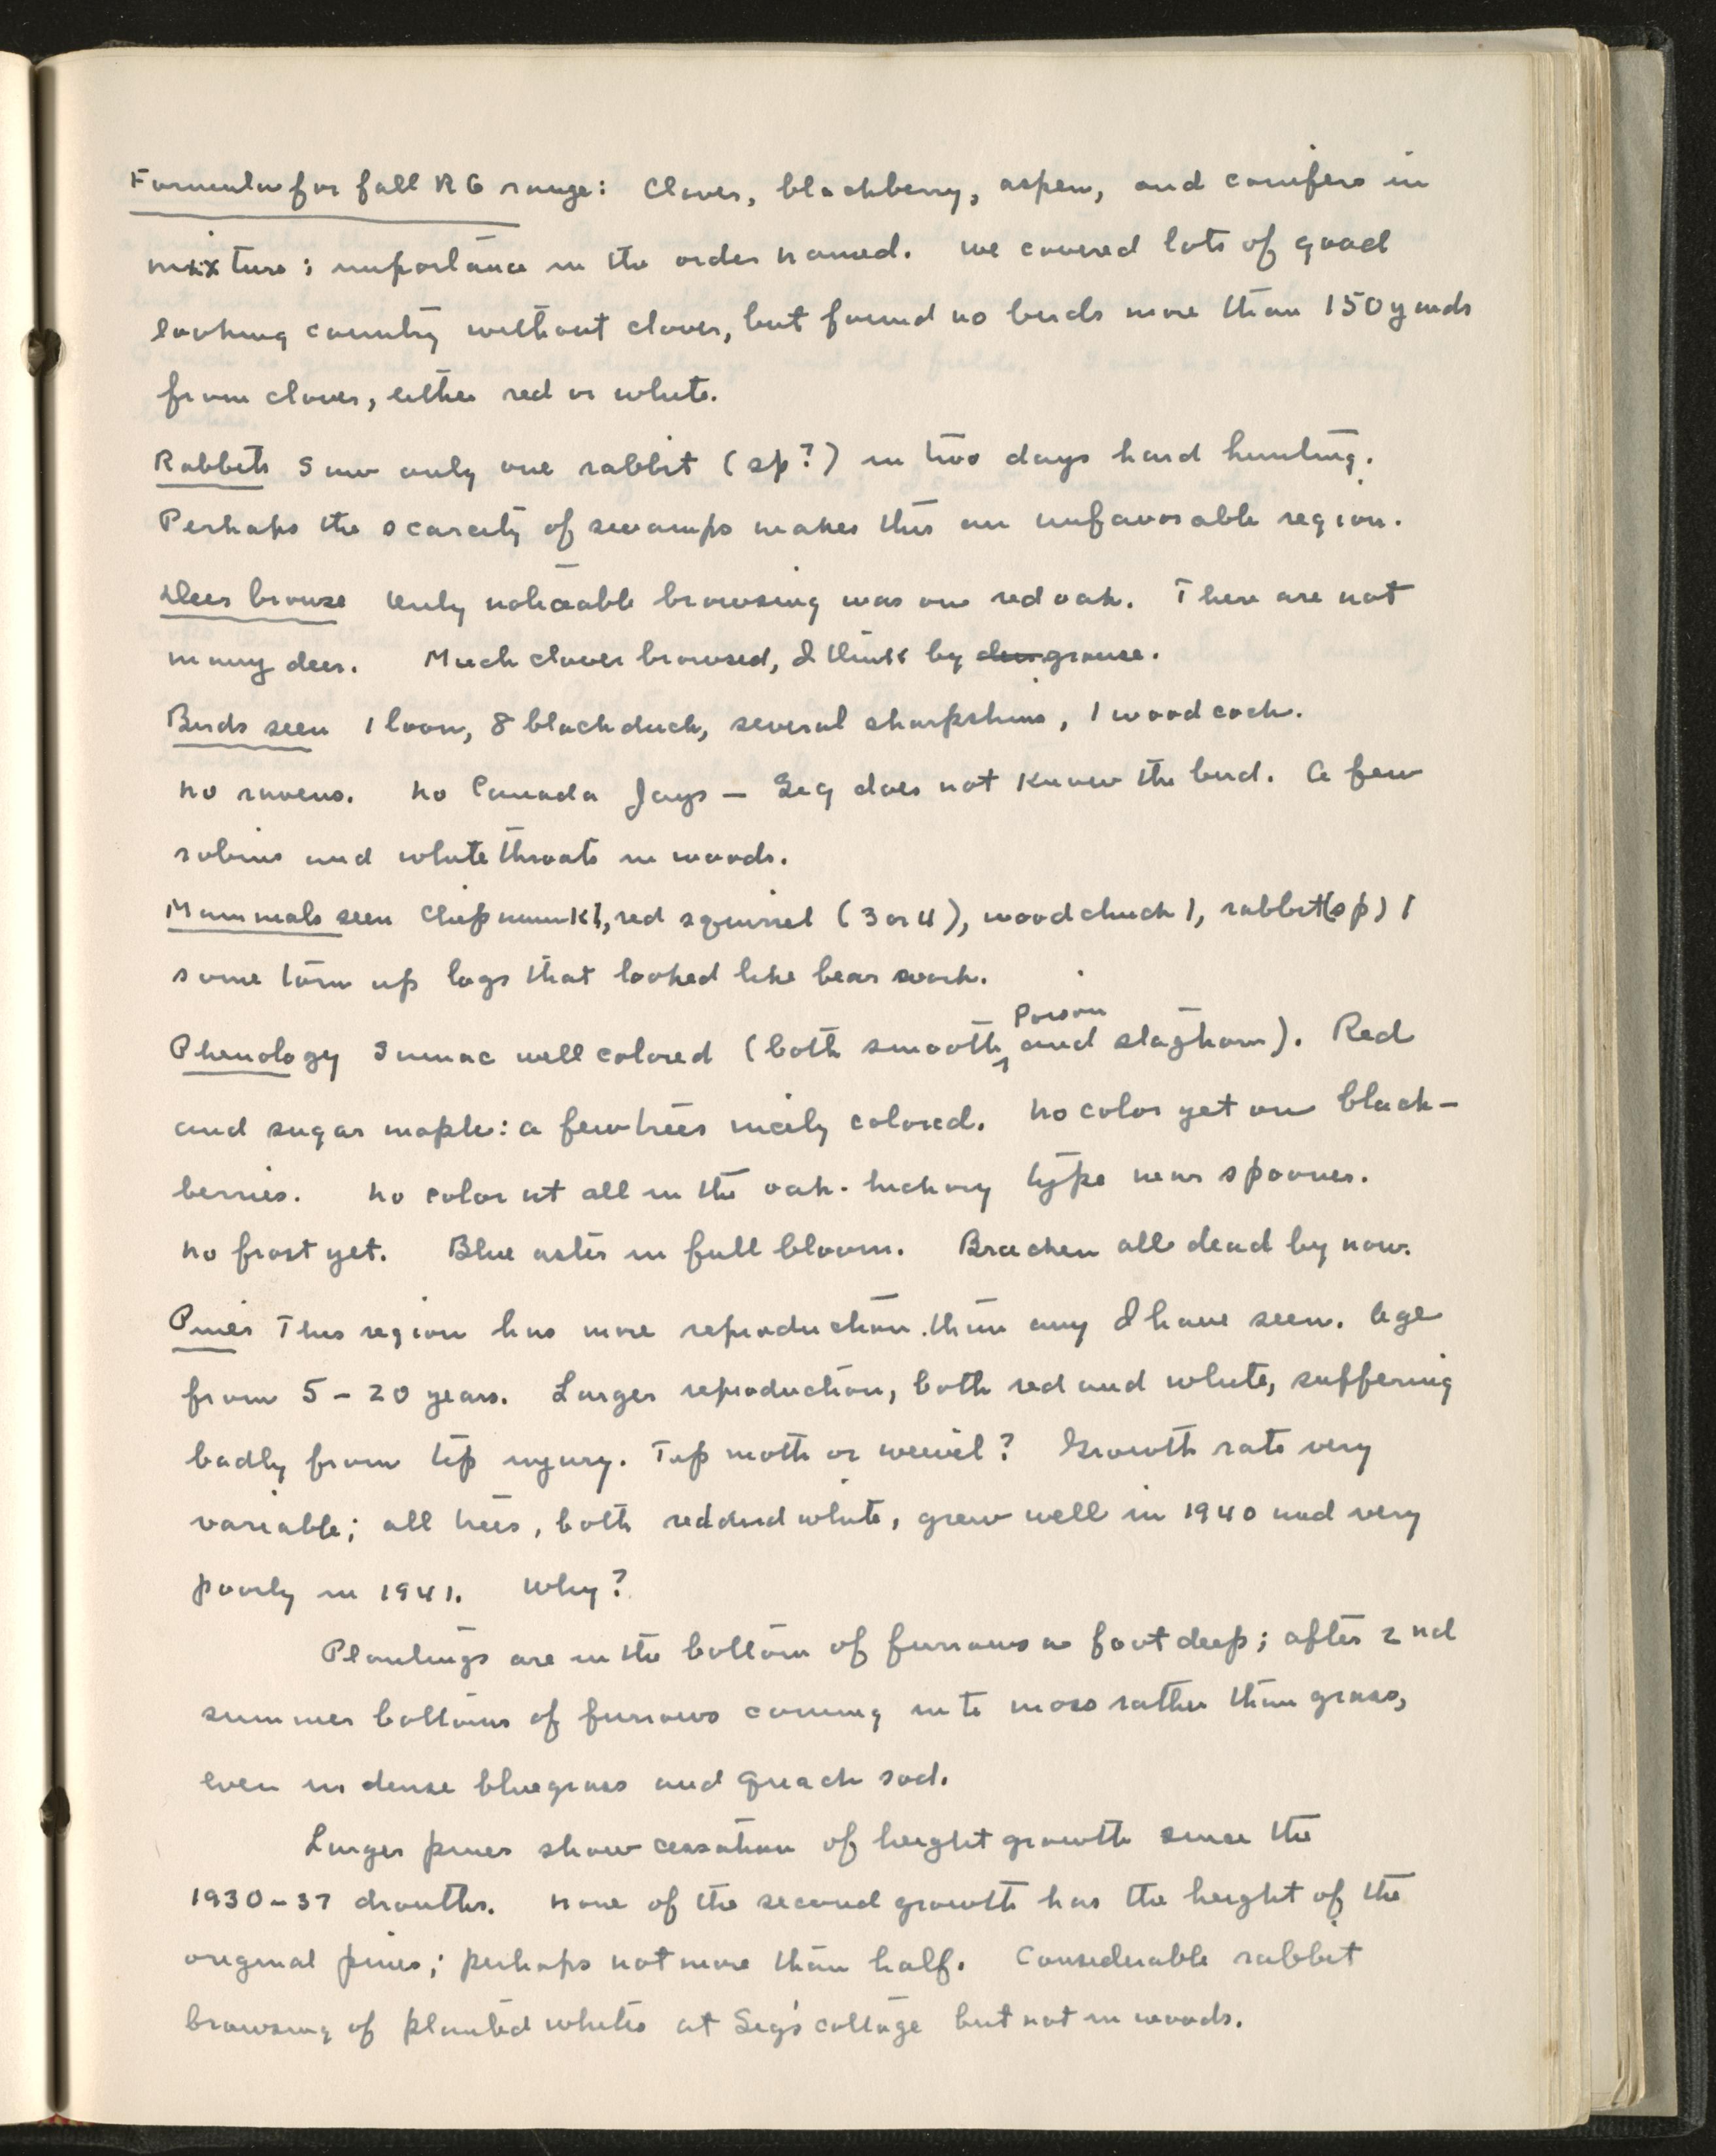 Formula for fall RG range: Clover, blackberry, aspen, and conifers in
mixture; importance in the order named. We covered lots of good
looking country without clover, but found no birds more than 150 yards
from clover, either red or white.
Rabbits Saw only one rabbit (sp?) in two days hard hunting.
Perhaps the scarcity of swamps makes this an unfavorable region.
Deer browse Only noticeable browsing was on red oak. There are not
many deer. Much clover browsed, I think by deer grouse.
Birds seen 1 loon, 8 black duck, several sharpshins, 1 woodcock.
No ravens. No Canada Jays — Sig does not know the bird. A few
robins and whitethroats in woods.
Mammals seen Chipmunk 1, red squirrel (3 or 4), woodchuck 1, rabbit (sp) 1
some torn up logs that looked like bear work.
Poison
Phenology Sumac well colored (both smooth, and staghorn). Red
and sugar maple: a few trees nicely colored. No color yet on black-
berries. No color at all in the oak-hickory type near Spooner.
No frost yet. Blue aster in full bloom. Bracken all dead by now.
Pines This region has more reproduction than any I have seen. Age
from 5 - 20 years. Larger reproduction, both red and white, suffering
badly from tip injury. Tip moth or weevil? Growth rate very
variable; all trees, both red and white, grew well in 1940 and very
poorly in 1941. Why?
Plantings are in the bottom of furrows a foot deep; after 2nd
summer bottoms of furrows coming into moss rather than grass,
even in dense bluegrass and quack sod.
Larger pines show cessation of height growth since the
1930-37 drouths. None of the second growth has the height of the
original pines; perhaps not more than half. Considerable rabbit
browsing of planted whites at Sig's cottage but not in woods.